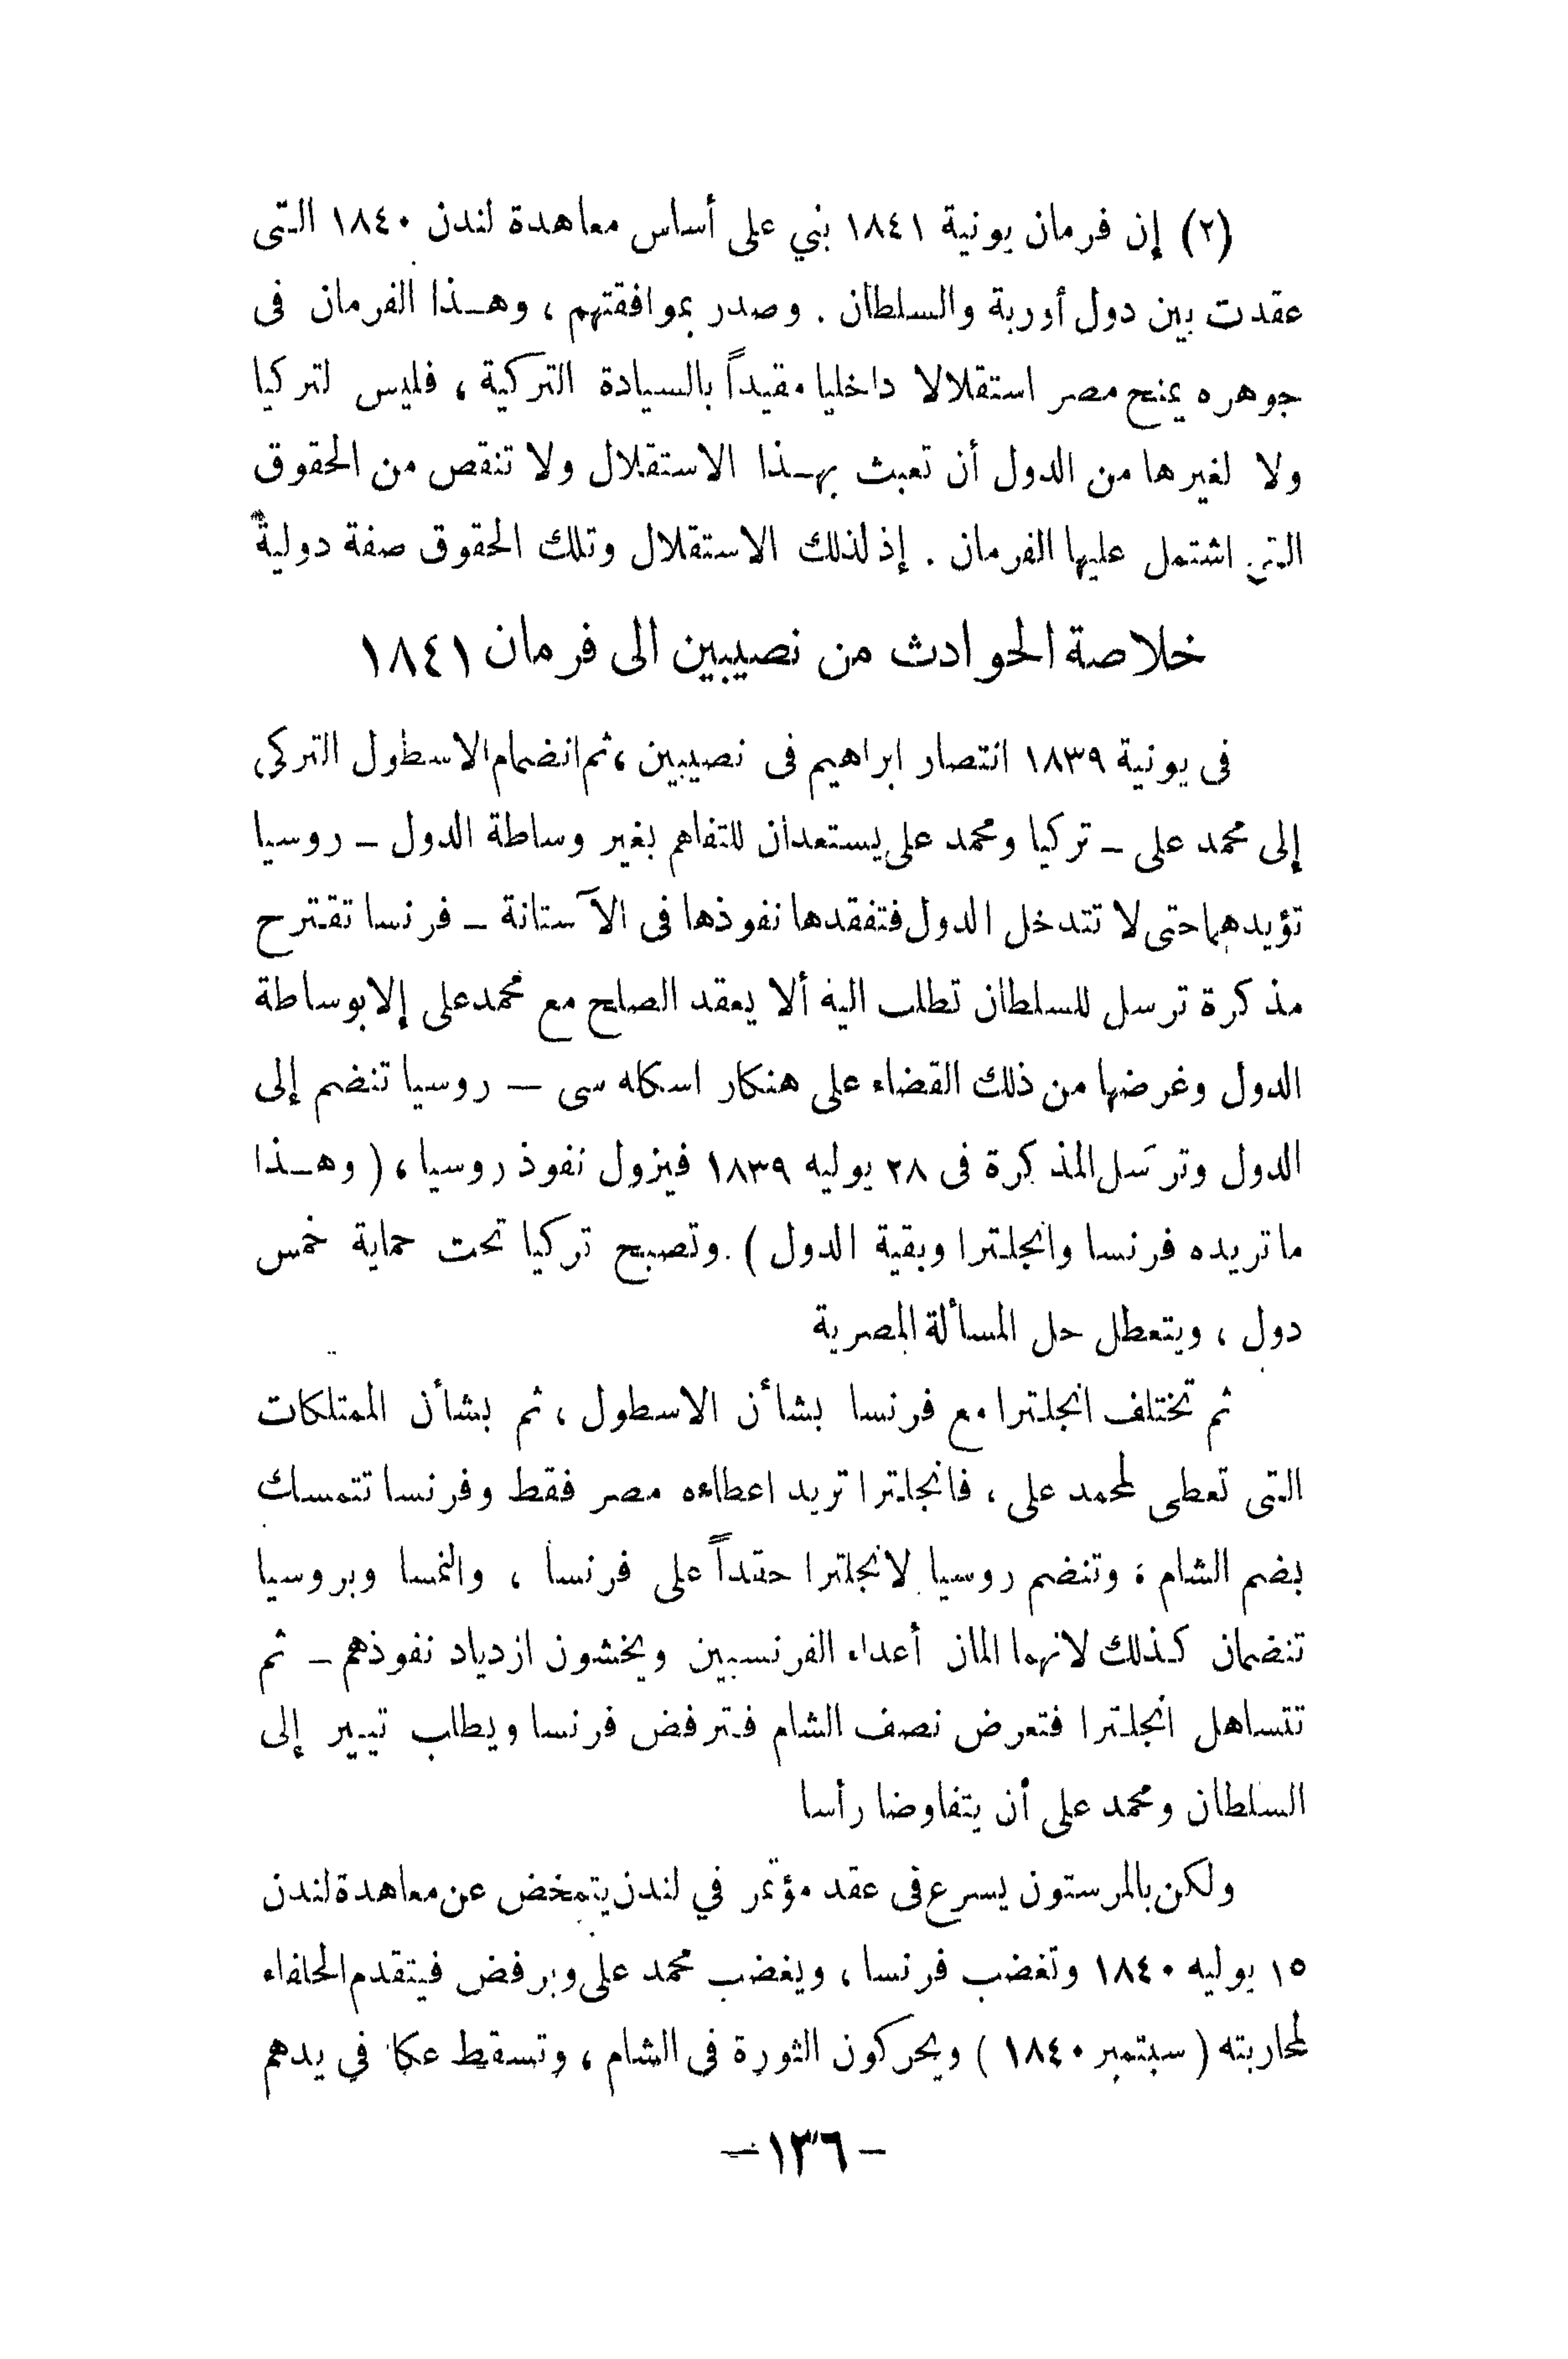 (٢) إن فرمان يونية ١٨٤١ بني على أساس معاهدة لندن ١٨٤٠ التى
عقدت بين دول أوربة والسلطان . وصدر بموافقتهم ، وهـذا الفرمان فى
جوهره يمنح مصر استقلالا داخليا مقيداً بالسيادة التركية ، فليس لتركيا
ولا لغيرها من الدول أن تعبث بهـذا الاستقلال ولا تنقص من الحقوق
التى اشتمل عليها الفرمان . إذ لذلك الاستقلال وتلك الحقوق صفة دولية
خلاصة الحوادث من نصيبين الى فرمان ١٨٤١
فى يونية ١٨٣٩ انتصار ابراهيم فى نصيبين ، ثم انضمام الاسطول التركى
إلى محمد على ـ تركيا ومحمد على يستعدان للتفاهم بغير وساطة الدول ـ روسيا
تؤيدهما حتى لا تتدخل الدول فتفقدها نفوذها فى الآستانة ـ فرنسا تقترح
مذكرة ترسل للسلطان تطلب اليه ألا يعقد الصلح مع محمد على إلا بوساطة
الدول وغرضها من ذلك القضاء على هنكار اسكله سى — روسيا تنضم إلى
الدول وترسَل المذكرة فى ٢٨ يوليه ١٨٣٩ فيزول نفوذ روسيا ، ( وهـذا
ما تريده فرنسا وانجلترا وبقية الدول ) . وتصبح تركيا تحت حماية خمس
دول ، ويتعطل حل المسألة المصرية
ثم تختلف انجلترا مع فرنسا بشأن الاسطول ، ثم بشأن الممتلكات
التى تعطى لمحمد على ، فانجلترا تريد اعطاءه مصر فقط وفرنسا تتمسك
بضم الشام : وتنضم روسيا لانجلترا حقداً على فرنسا ، والنمسا وبروسيا
تنضمان كذلك لانهما المان أعداء الفرنسيين ويخشون ازدياد نفوذهم ـ ثم
تتساهل انجلترا فتعرض نصف الشام فترفض فرنسا ويطلب تيير إلى
السلطان ومحمد على أن يتفاوضا رأسا
ولكن بالمرستون يسرع فى عقد مؤتمر في لندن يتمخض عن معاهدة لندن
١٥ يوليه ١٨٤٠ وتغضب فرنسا ، ويغضب محمد على ويرفض فيتقدم الحلفاء
لمحاربته ( سبتمبر ١٨٤٠ ) ويحركون الثورة فى الشام ، وتسقط عكا في يدهم
— ١٣٦ —